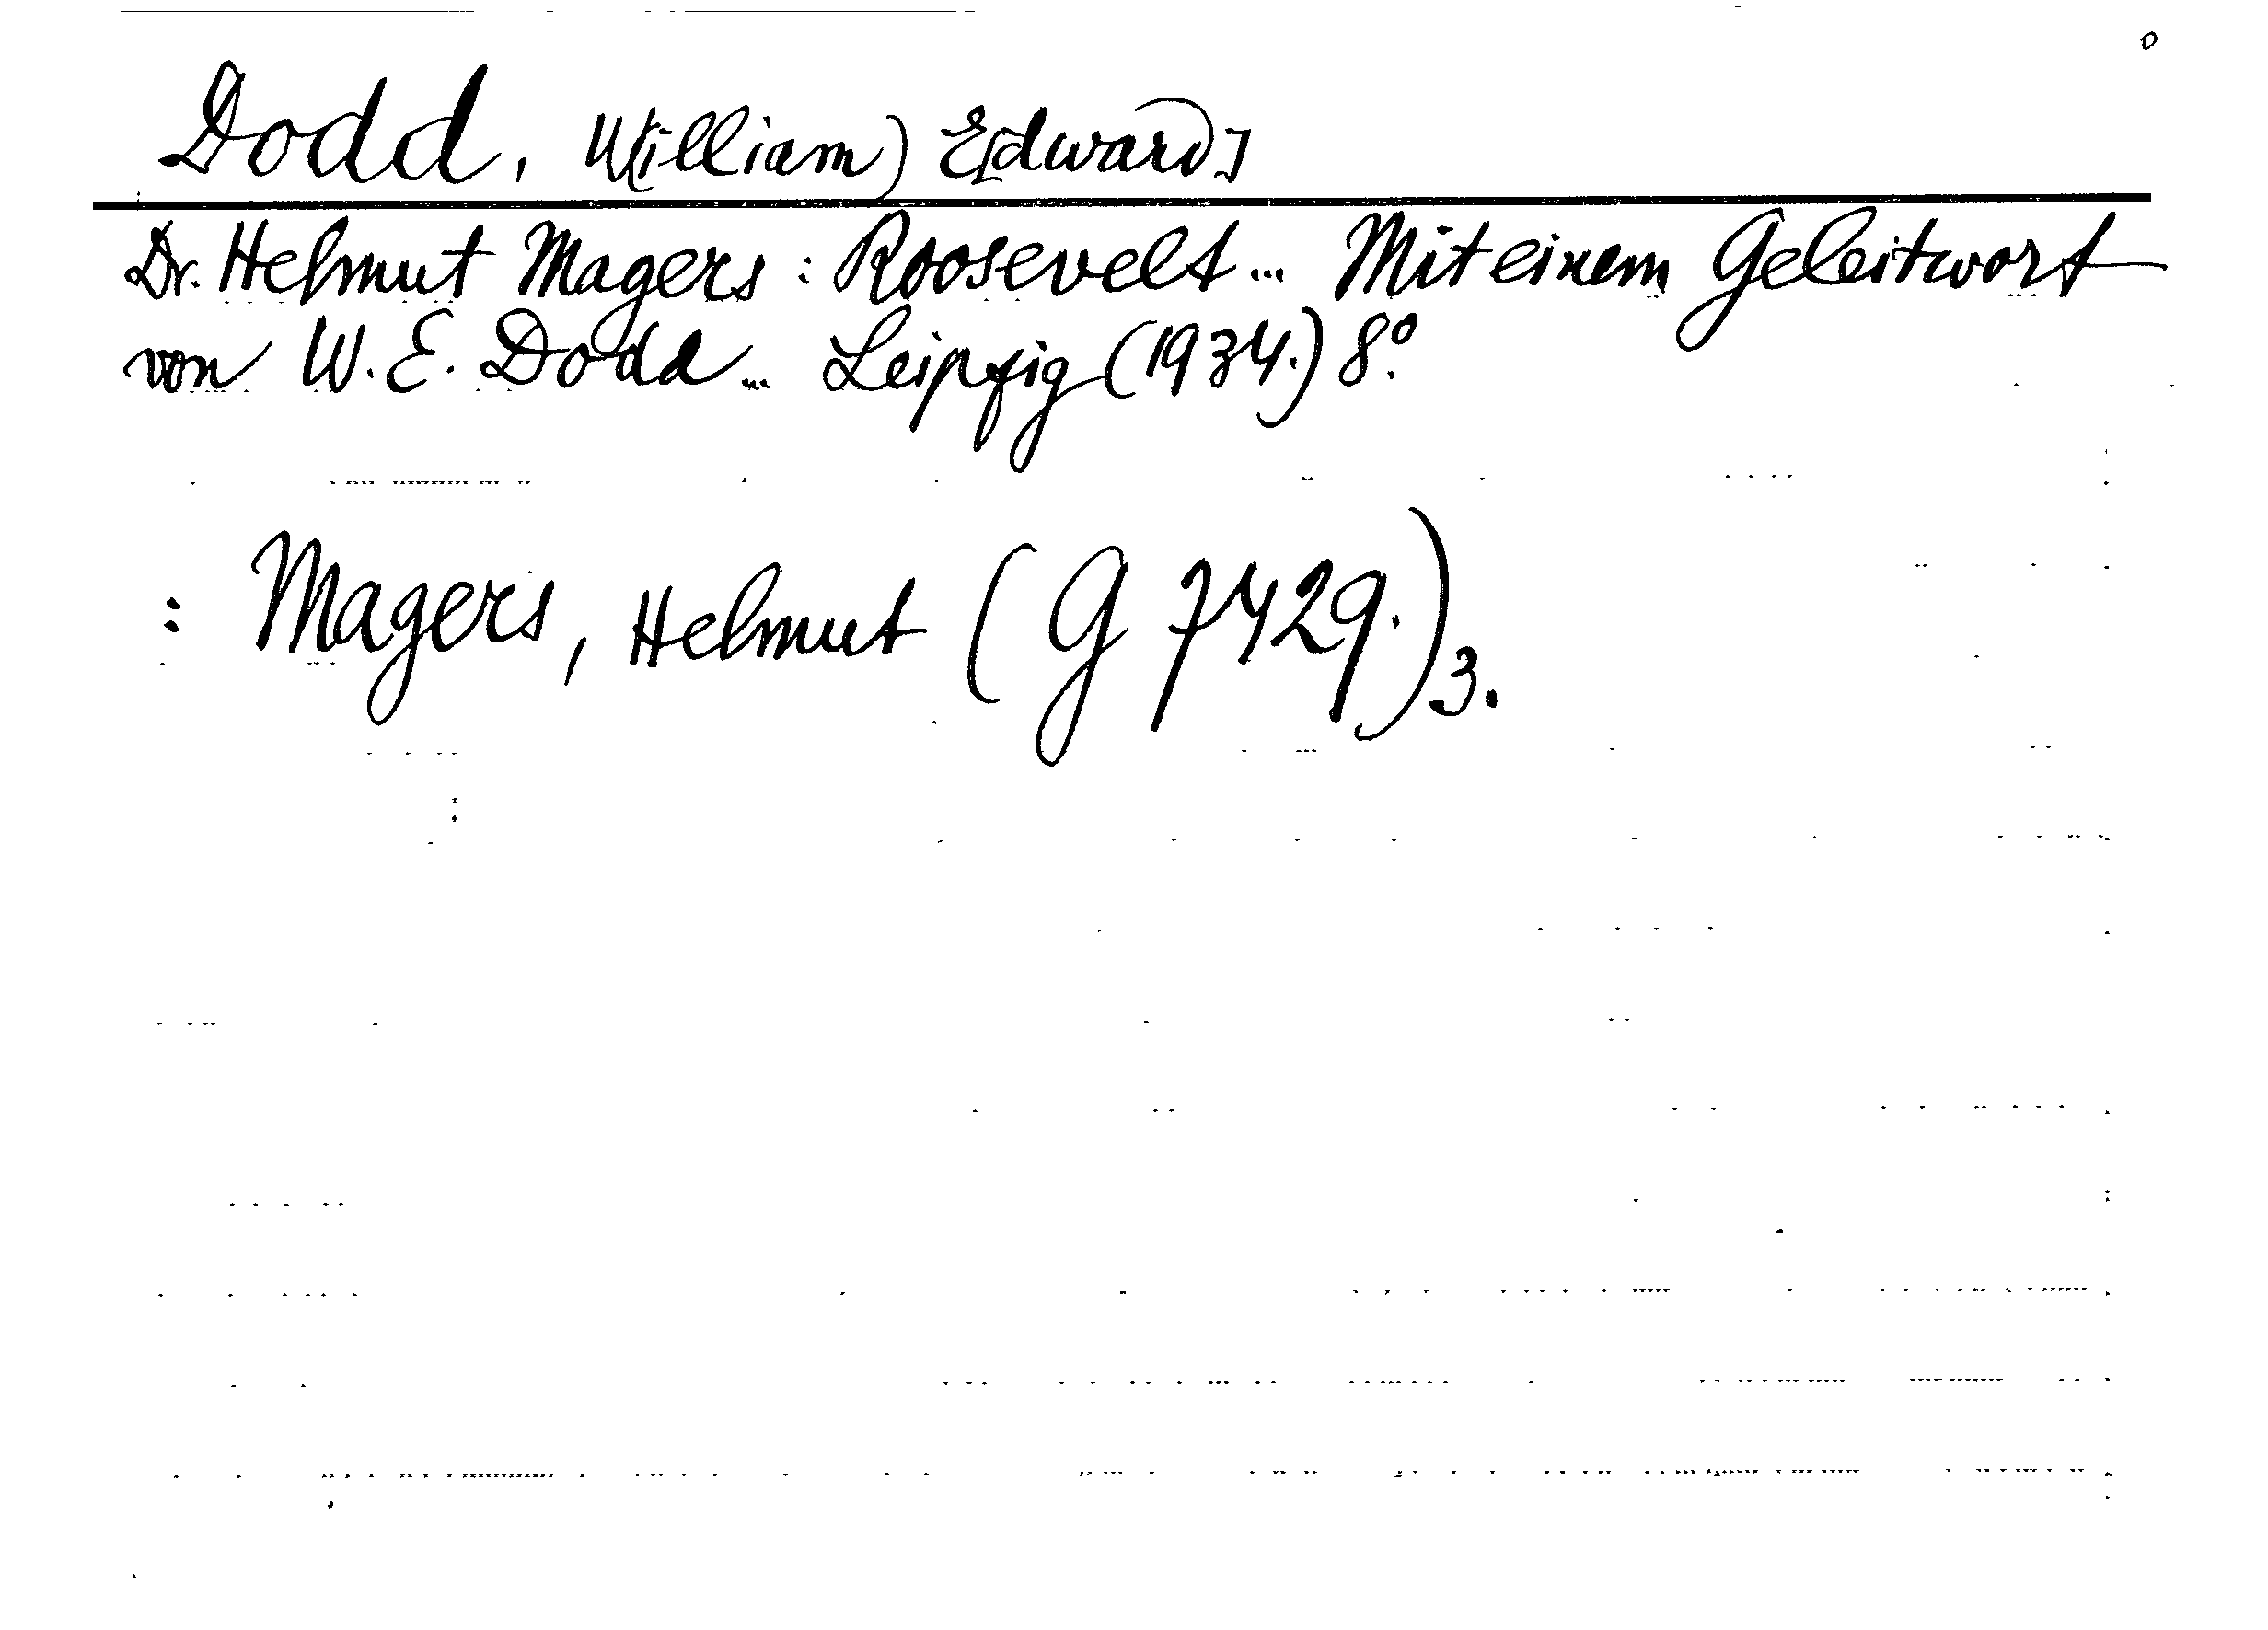 Dodd, W(illiam) E[dward]
Dr. Helmut Magers: Roosevelt... Mit einem Geleitwort
von W. E. Dodd... Leipzig (1934.) 8°.
: Magers, Helmut (G 7429.)3.